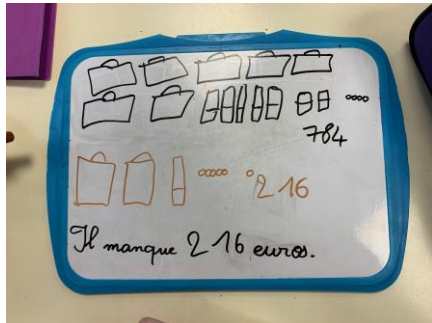 784
216
Il manque 216 euros.